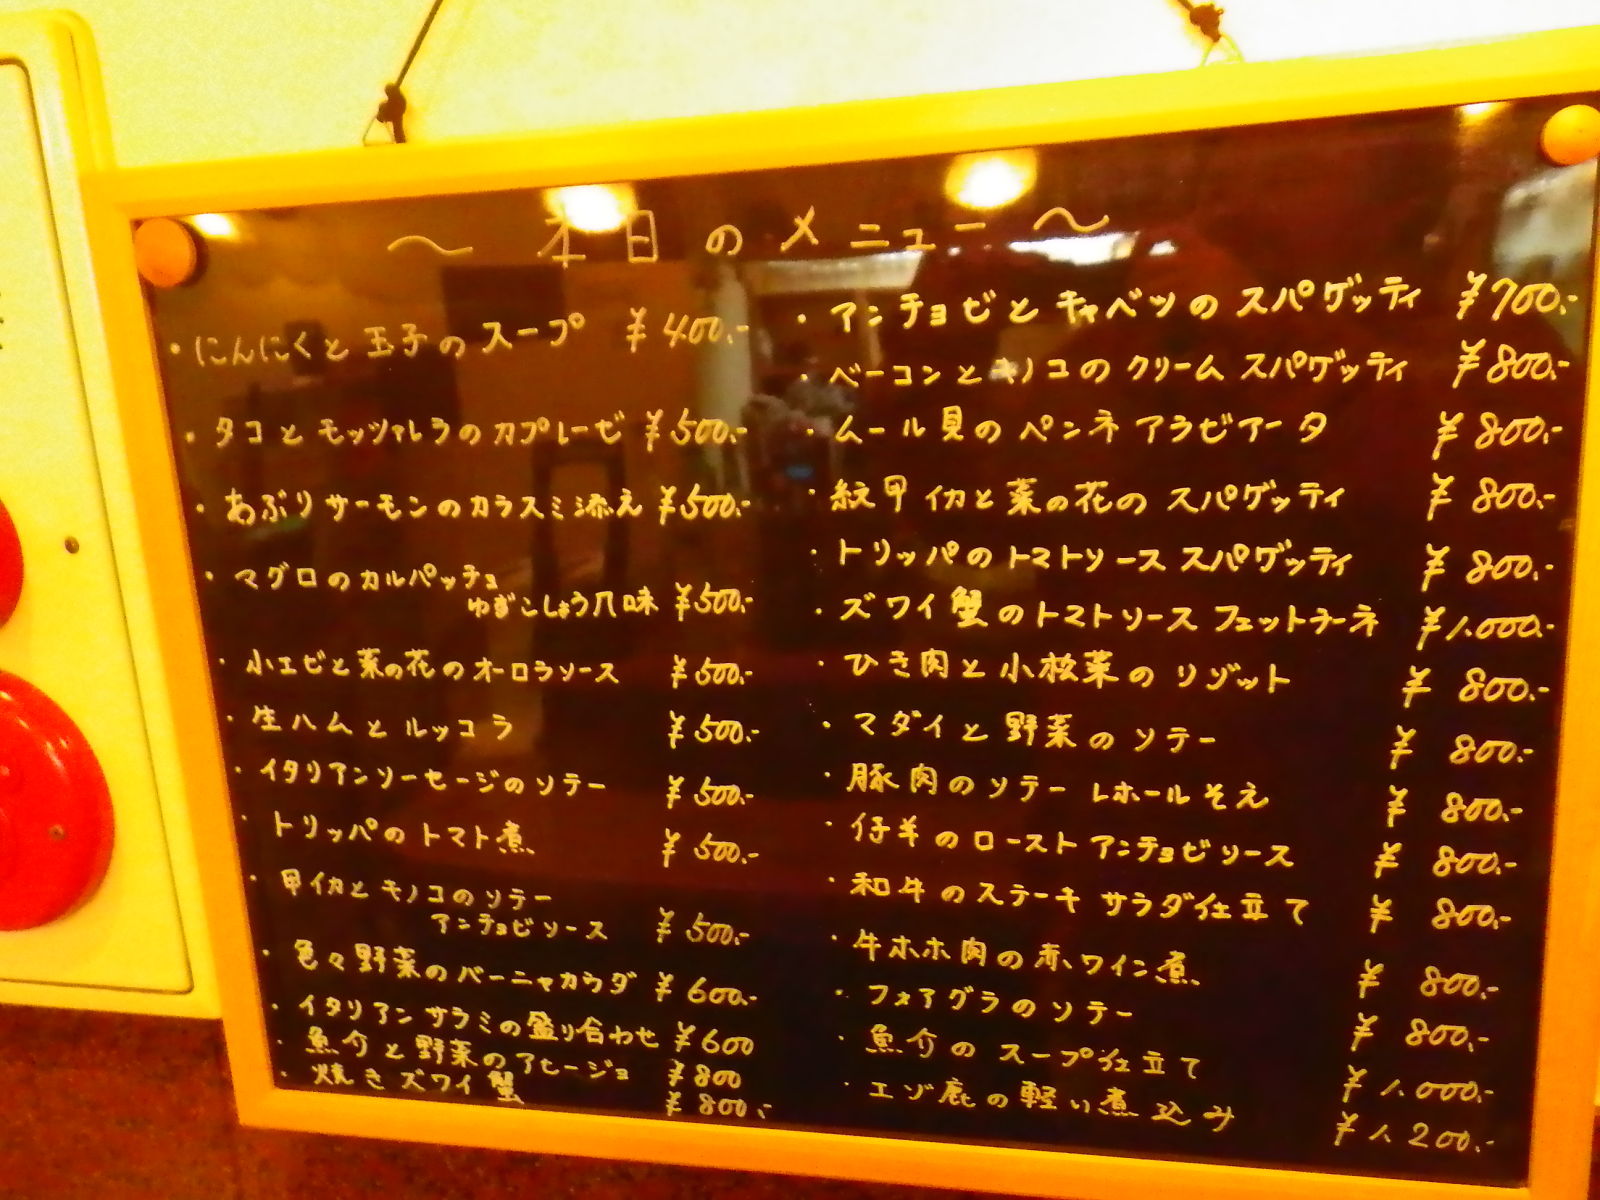 ～ 本日のメニュー ～
・にんにくと玉子のスープ ¥400.-
・タコとモッツァレラのカプレーゼ ¥500.-
・あぶりサーモンのカラスミ添え ¥500.-
・マグロのカルパッチョ
ゆずこしょう風味 ¥500.-
・小エビと菜の花のオーロラソース ¥500.-
・生ハムとルッコラ ¥500.-
・イタリアンソーセージのソテー ¥500.-
・トリッパのトマト煮 ¥500.-
・甲イカとキノコのソテー
アンチョビソース ¥500.-
・色々野菜のバーニャカウダ ¥600.-
・イタリアンサラミの盛り合わせ ¥600
・魚介と野菜のアヒージョ ¥800
・焼きズワイ蟹 ¥800.-
・アンチョビとキャベツのスパゲッティ ¥700.-
・ベーコンとキノコのクリームスパゲッティ ¥800.-
・ムール貝のペンネアラビアータ ¥800.-
・紋甲イカと菜の花のスパゲッティ ¥800.-
・トリッパのトマトソーススパゲッティ ¥800.-
・ズワイ蟹のトマトソースフェットチーネ ¥1.000.-
・ひき肉と小松菜のリゾット ¥800.-
・マダイと野菜のソテー ¥800.-
・豚肉のソテー レホールそえ ¥800.-
・仔羊のロースト アンチョビソース ¥800.-
・和牛のステーキ サラダ仕立て ¥800.-
・牛ホホ肉の赤ワイン煮 ¥800.-
・フォアグラのソテー ¥800.-
・魚介のスープ仕立て ¥1.000.-
・エゾ鹿の軽い煮込み ¥1.200.-